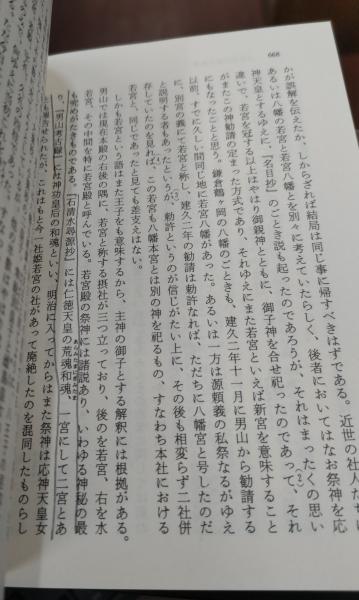 668
かが誤解を伝えたか、しからざれば結局は同じ事に帰すべきはずである。近世の社人
あるいは八幡の若宮と若宮八幡とを別々に考えていたらしく、後者においてはなお祭神を応
神天皇とするゆえに、『名目抄』のごとき説も起ったのであろうが、それはまったくの思い
違いで、若宮を冠する以上はやはり御親神とともに、御子神を合せ祀ったのであって、それ
がまたこの神勧請の定まった方式であり、それゆえにまた若宮といえば新宮を意味すること
にもなったことと思う。鎌倉鶴ヶ岡の八幡のごときも、建久二年十一月に男山から勧請する
以前、すでに久しい間同じ地に若宮八幡があった。あるいは一方は源頼義の私祭なるがゆえ
に、別宮の義にて若宮と称し、建久二年の勧請は勅許なれば、ただちに八幡宮と号したのだ
と説明する者もあったというが、勅許というのが信じがたい上に、その後も相変らず二社併
存していたのを見れば、この若宮も八幡本宮とは別の神を祀るもの、すなわち本社における
若宮と、同じであったと見ても差支えはない。
しかも若宮という語はまた王子をも意味するから、主神の御子とする解釈には根拠がある。
男山では現在本殿の右後の隅に、若宮と称する摂社が三つ立っており、後のを若宮、右を水
若宮、その中間を特に若宮殿と呼んでいる。若宮殿の祭神には諸説あり、いわゆる神秘の最
も呪めかしきものであった。『石清水尋源抄』には仁徳天皇の荒魂和魂、一宮にして二宮とあ
り、『男山考古録』には神功皇后の和魂といい、明治に入ってからはまた祭神は応神天皇女
こわはもと今一社姫若宮の社があって廃絶したのを混同したものらし